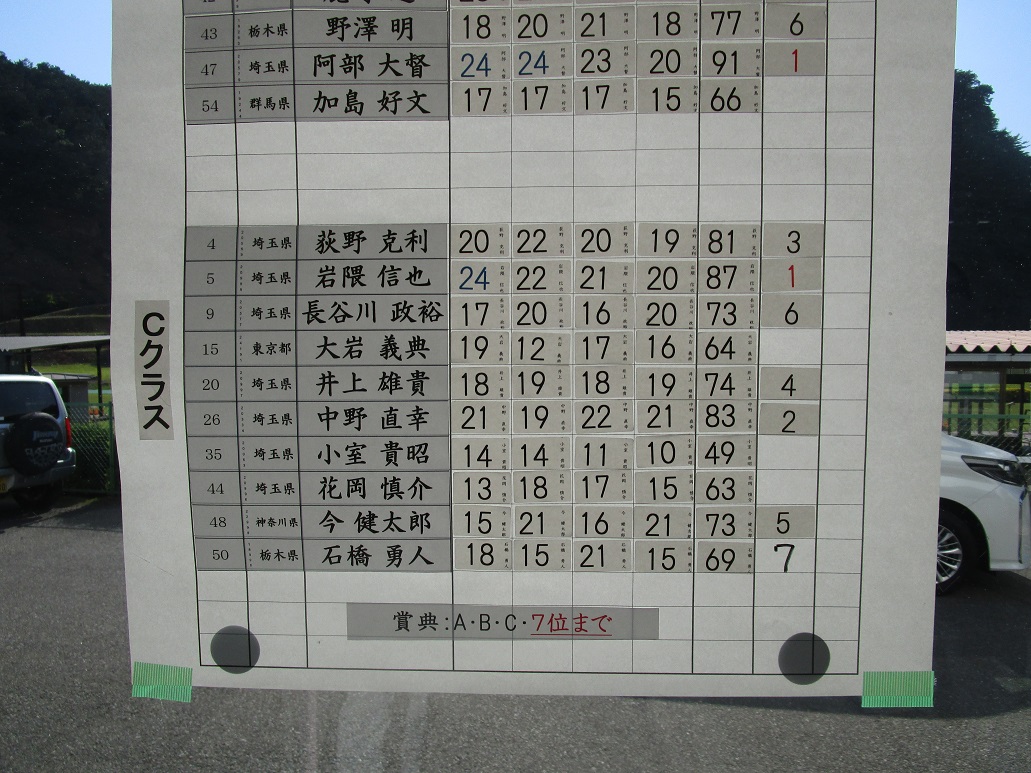 43 栃木県 野澤 明 18 20 21 18 77 6
47 埼玉県 阿部 大督 24 24 23 20 91 1
54 群馬県 加島 好文 17 17 17 15 66
Cクラス
4 埼玉県 荻野 克利 20 22 20 19 81 3
5 埼玉県 岩隈 信也 24 22 21 20 87 1
9 埼玉県 長谷川 政裕 17 20 16 20 73 6
15 東京都 大岩 義典 19 12 17 16 64
20 埼玉県 井上 雄貴 18 19 18 19 74 4
26 埼玉県 中野 直幸 21 19 22 21 83 2
35 埼玉県 小室 貴昭 14 14 11 10 49
44 埼玉県 花岡 慎介 13 18 17 15 63
48 神奈川県 今 健太郎 15 21 16 21 73 5
50 栃木県 石橋 勇人 18 15 21 15 69 7
賞典:A・B・C・7位まで